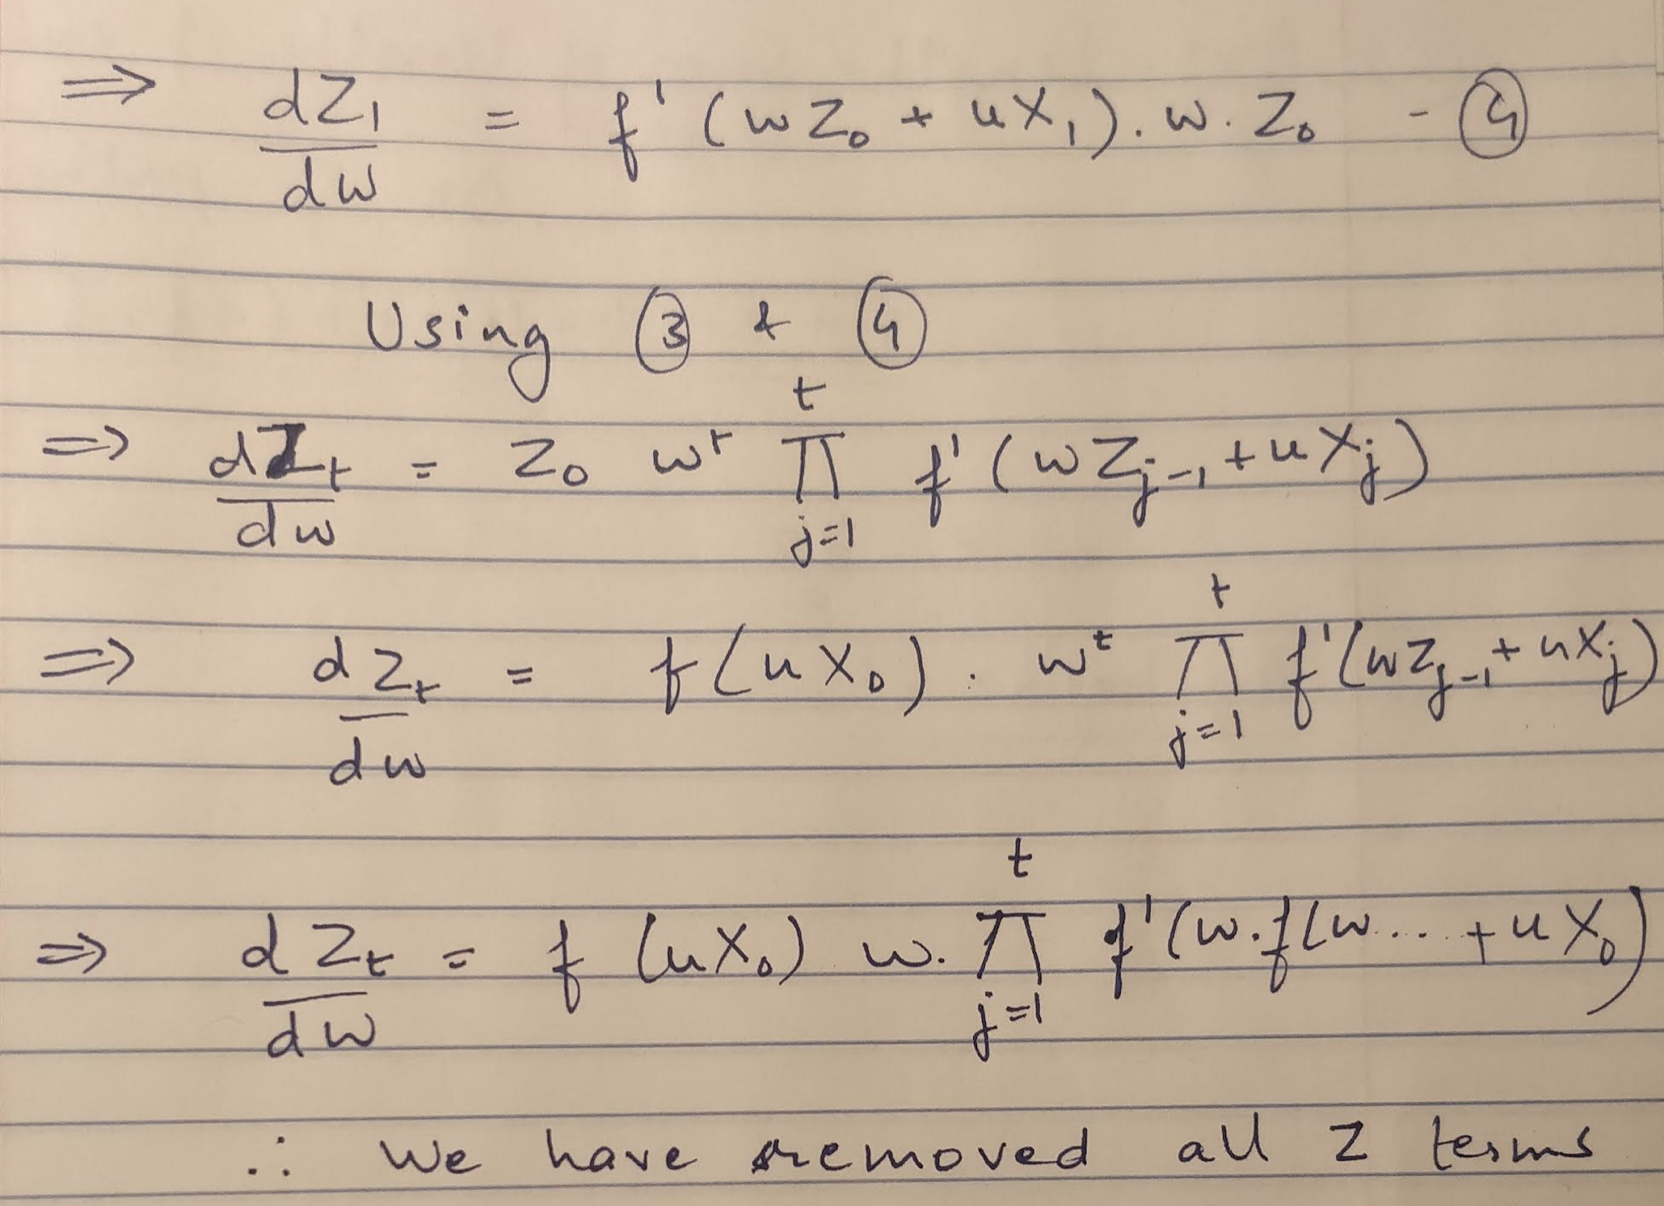 ⇒ dZ₁/dw = f'(wZ₀ + uX₁). w. Z₀ - ④
Using ③ & ④
⇒ dZₜ/dw = Z₀ wᵗ ∏_{j=1}^{t} f'(wZ_{j-1} + uX_j)
⇒ dZₜ/dw = f(uX₀). wᵗ ∏_{j=1}^{t} f'(wZ_{j-1} + uX_j)
⇒ dZₜ/dw = f(uX₀) w. ∏_{j=1}^{t} f'(w.f(w... + uX₀)
∴ We have removed all Z terms